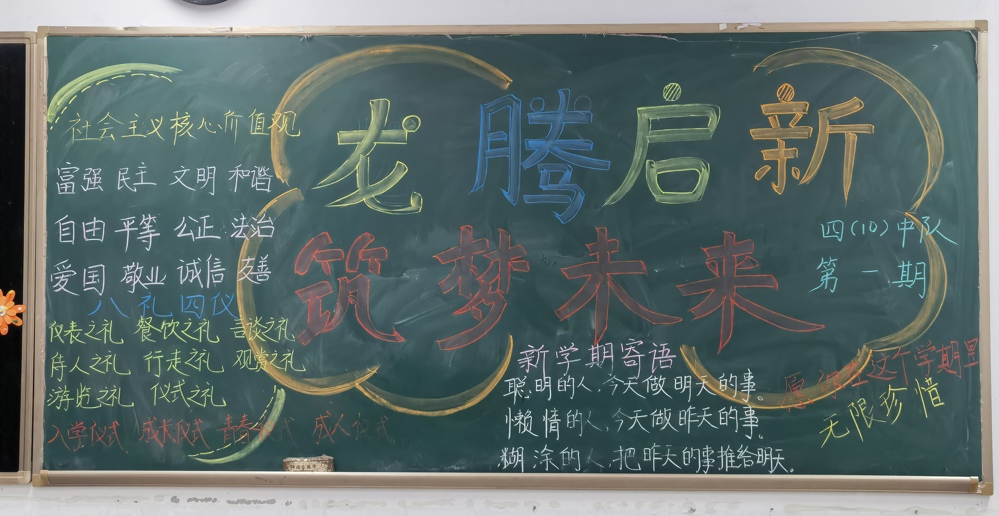 龙腾启新
筑梦未来
社会主义核心价值观
富强 民主 文明 和谐
自由 平等 公正 法治
爱国 敬业 诚信 友善
八礼四仪
仪表之礼 餐饮之礼 言谈之礼
待人之礼 行走之礼 观赏之礼
游览之礼 仪式之礼
入学仪式 成长仪式 青春仪式 成人仪式
四(10)中队
第一期
新学期寄语
聪明的人,今天做明天的事。
懒惰的人,今天做昨天的事。
糊涂的人,把昨天的事推给明天。
愿你在这个学期里
无限珍惜